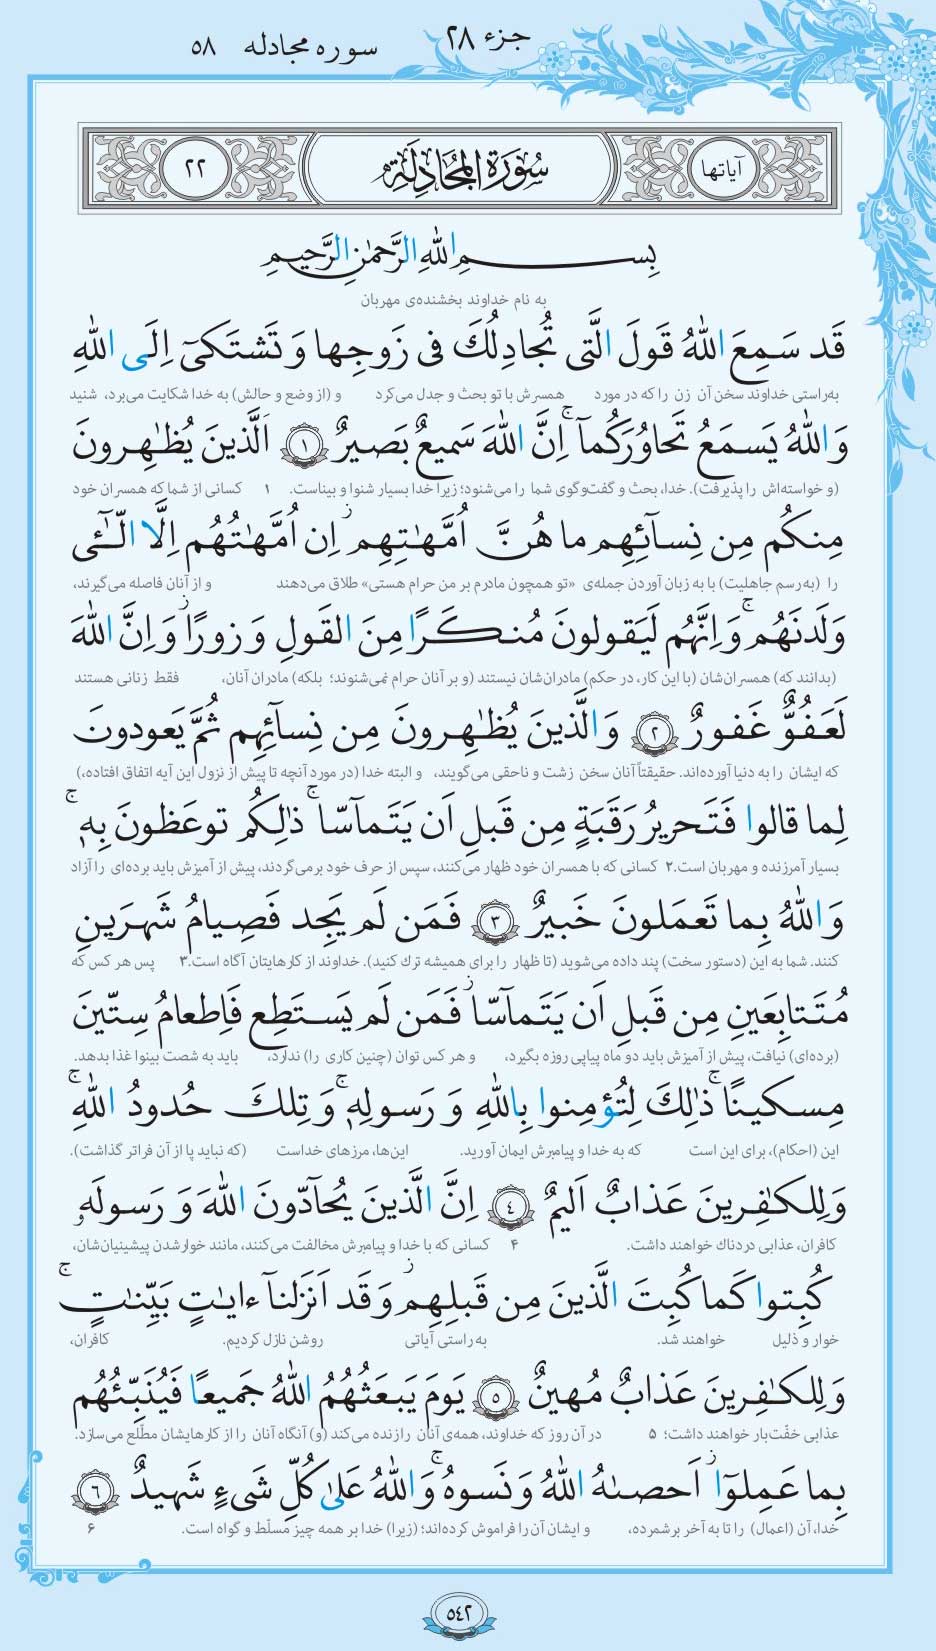 جزء ۲۸
سوره مجادله ۵۸
آیاتها
سُورَةُ المُجَادِلَةِ
۲۲
بِسمِ اللّٰهِ الرَّحمٰنِ الرَّحیمِ
به نام خداوند بخشنده‌ی مهربان
قَد سَمِعَ اللّٰهُ قَولَ الَّتی تُجادِلُكَ فی زَوجِها وَ تَشتَكیٓ اِلَی اللّٰهِ
به‌راستی خداوند سخن آن زن را که در مورد همسرش با تو بحث و جدل می‌کرد و (از وضع و حالش) به خدا شکایت می‌برد، شنید
وَ اللّٰهُ یَسمَعُ تَحاوُرَكُمآ ۚ اِنَّ اللّٰهَ سَمیعٌ بَصیرٌ ۱ اَلَّذینَ یُظٰهِرونَ
(و خواسته‌اش را پذیرفت). خدا، بحث و گفت‌وگوی شما را می‌شنود؛ زیرا خدا بسیار شنوا و بیناست. ۱ کسانی از شما که همسران خود
مِنكُم مِن نِسآئِهِم ما هُنَّ اُمَّهٰتِهِم ۖ اِن اُمَّهٰتُهُم اِلَّا الّٰٓئی
را (به‌رسم جاهلیت) با به زبان آوردن جمله‌ی «تو همچون مادرم بر من حرام هستی» طلاق می‌دهند و از آنان فاصله می‌گیرند،
وَلَدنَهُم ۚ وَ اِنَّهُم لَیَقولونَ مُنكَرًا مِنَ القَولِ وَ زورًا ۖ وَ اِنَّ اللّٰهَ
(بدانند که) همسران‌شان (با این کار، در حکم) مادران‌شان نیستند (و بر آنان حرام نمی‌شنوند؛ بلکه) مادران آنان، فقط زنانی هستند
لَعَفُوٌّ غَفورٌ ۲ وَ الَّذینَ یُظٰهِرونَ مِن نِسآئِهِم ثُمَّ یَعودونَ
که ایشان را به دنیا آورده‌اند. حقیقتاً آنان سخن زشت و ناحقی می‌گویند، و البته خدا (در مورد آنچه تا پیش از نزول این آیه اتفاق افتاده،)
لِما قالوا فَتَحریرُ رَقَبَةٍ مِن قَبلِ اَن یَتَمآسّا ۚ ذٰلِكُم توعَظونَ بِهٖ ۚ
بسیار آمرزنده و مهربان است.۲ کسانی که با همسران خود ظهار می‌کنند، سپس از حرف خود برمی‌گردند، پیش از آمیزش باید برده‌ای را آزاد
وَ اللّٰهُ بِما تَعمَلونَ خَبیرٌ ۳ فَمَن لَم یَجِد فَصِیامُ شَهرَینِ
کنند. شما به این (دستور سخت) پند داده می‌شوید (تا ظهار را برای همیشه ترك کنید). خداوند از کارهایتان آگاه است.۳ پس هر کس که
مُتَتابِعَینِ مِن قَبلِ اَن یَتَمآسّا ۖ فَمَن لَم یَستَطِع فَاِطعامُ سِتّینَ
(برده‌ای) نیافت، پیش از آمیزش باید دو ماه پیاپی روزه بگیرد، و هر کس توان (چنین کاری را) ندارد، باید به شصت بینوا غذا بدهد.
مِسكینًا ۚ ذٰلِكَ لِتُؤمِنوا بِاللّٰهِ وَ رَسولِهٖ ۚ وَ تِلكَ حُدودُ اللّٰهِ ۗ
این (احکام)، برای این است که به خدا و پیامبرش ایمان آورید. این‌ها، مرزهای خداست (که نباید پا از آن فراتر گذاشت).
وَ لِلكٰفِرینَ عَذابٌ اَلیمٌ ٤ اِنَّ الَّذینَ یُحآدّونَ اللّٰهَ وَ رَسولَهٗ
کافران، عذابی دردناك خواهند داشت. ۴ کسانی که با خدا و پیامبرش مخالفت می‌کنند، مانند خوارشدن پیشینیان‌شان،
كُبِتوا كَما كُبِتَ الَّذینَ مِن قَبلِهِم ۚ وَ قَد اَنزَلنآ ءایاتٍ بَیِّنٰتٍ ۚ
خوار و ذلیل خواهند شد. به‌راستی آیاتی روشن نازل کردیم. کافران،
وَ لِلكٰفِرینَ عَذابٌ مُهینٌ ٥ یَومَ یَبعَثُهُمُ اللّٰهُ جَمیعًا فَیُنَبِّئُهُم
عذابی خفّت‌بار خواهند داشت؛ ۵ در آن روز که خداوند، همه‌ی آنان را زنده می‌کند (و) آنگاه آنان را از کارهایشان مطّلع می‌سازد.
بِما عَمِلوٓا ۚ اَحصٰىهُ اللّٰهُ وَ نَسوهُ ۚ وَ اللّٰهُ عَلیٰ كُلِّ شَیءٍ شَهیدٌ ٦
خدا، آن (اعمال) را تا به آخر برشمرده، و ایشان آن را فراموش کرده‌اند؛ (زیرا) خدا بر همه چیز مسلّط و گواه است. ۶
٥٤٢